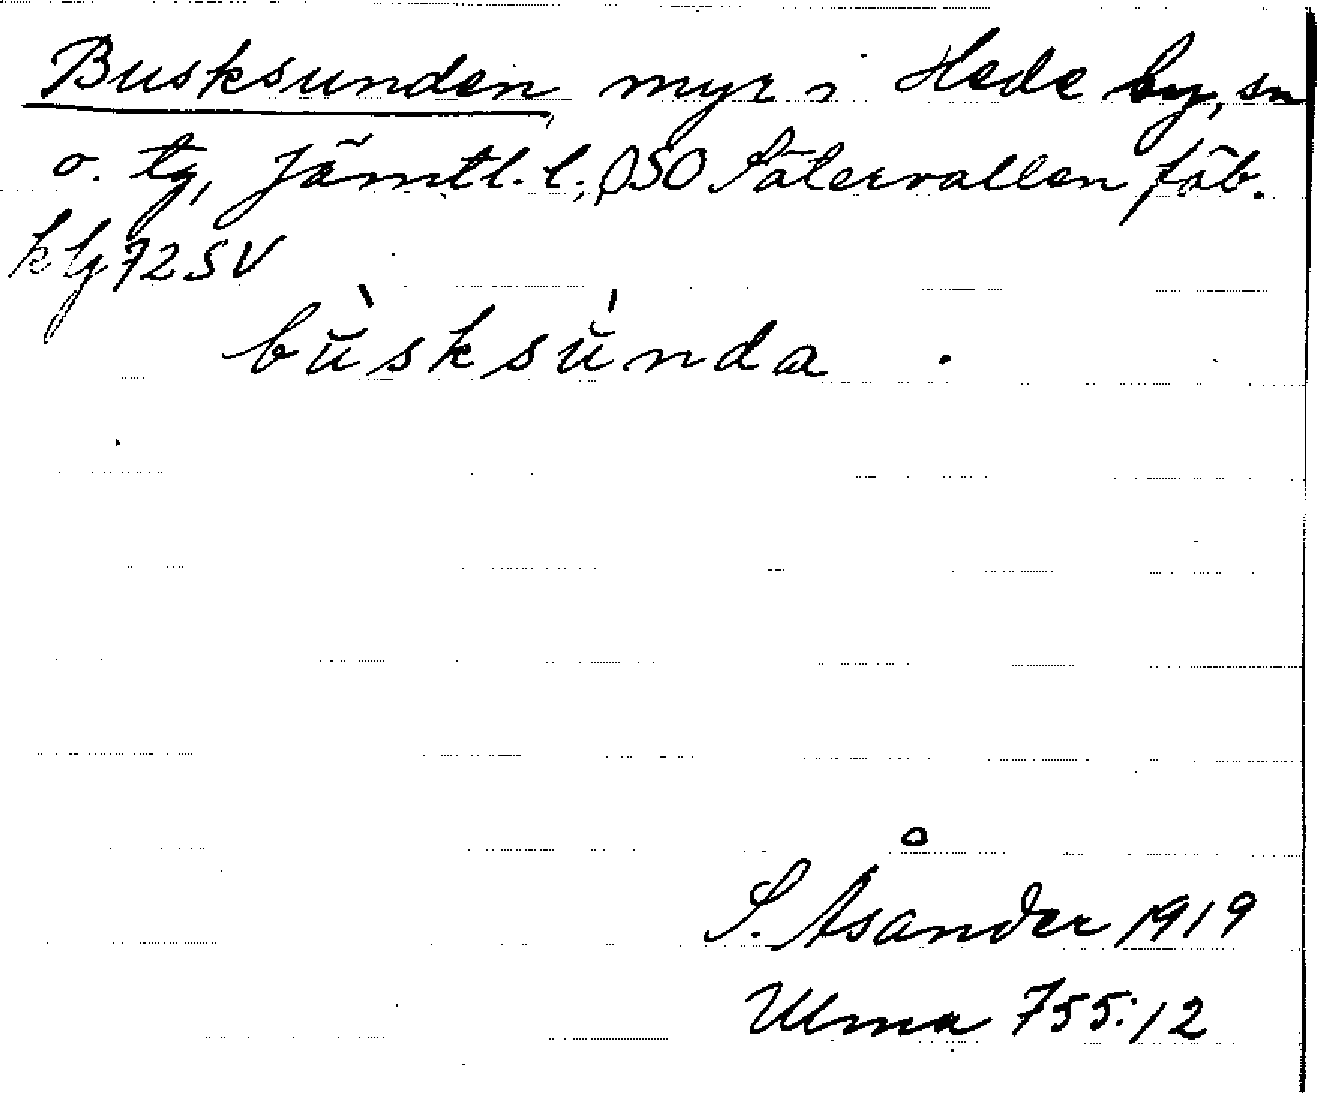 Busksunden myr i Hede by, sn
o. tg, Jämtl. l., OSO Sätervallen fäb.
kbg 72 SV
bùsksúnda
S. Åsander 1919
Ulma 755:12